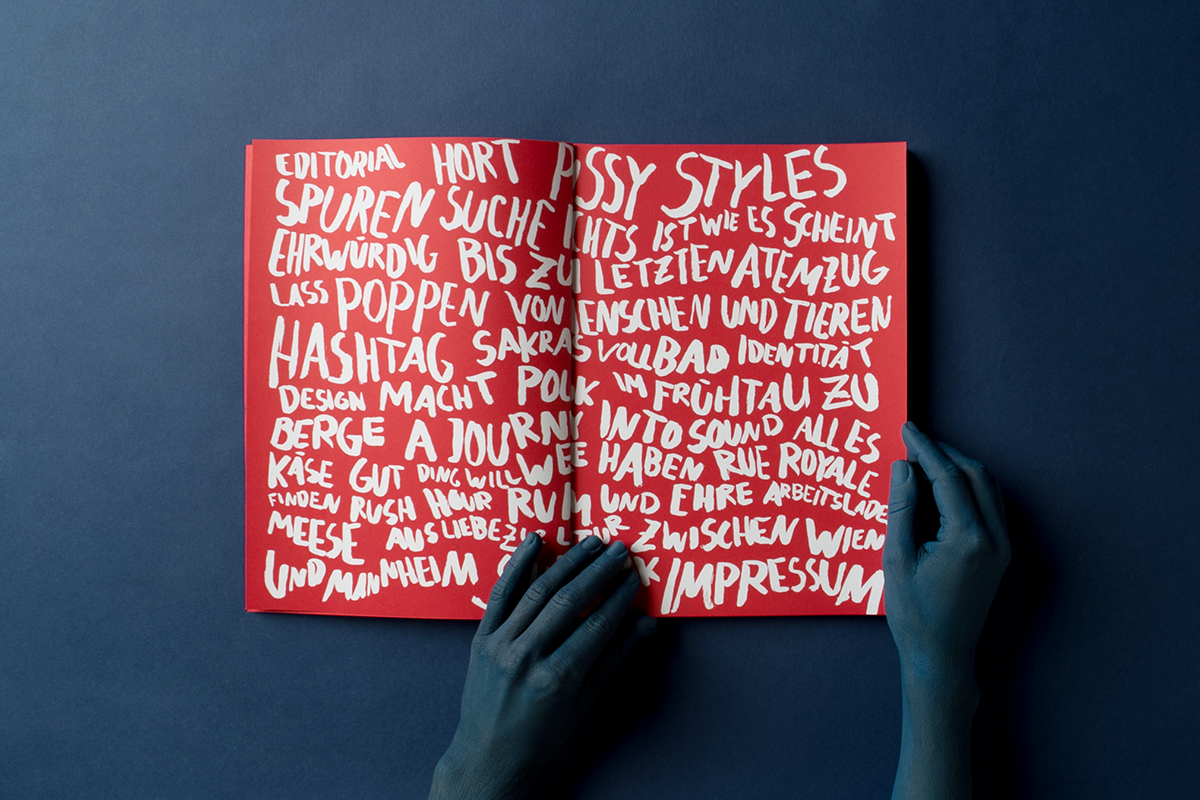 EDITORIAL HORT PUSSY STYLES
SPUREN SUCHE NICHTS IST WIE ES SCHEINT
EHRWÜRDIG BIS ZUM LETZTEN ATEMZUG
LASS POPPEN VON MENSCHEN UND TIEREN
HASHTAG SAKRAS VOLLBAD IDENTITÄT
DESIGN MACHT POLK IM FRÜHTAU ZU
BERGE A JOURNY INTO SOUND ALLES
KÄSE GUT DING WILL WEE HABEN RUE ROYALE
FINDEN RUSH HOUR RUM UND EHRE ARBEITSLADE
MEESE AUS LIEBE ZUR ZWISCHEN WIEN
UND MANNHEIM IMPRESSUM